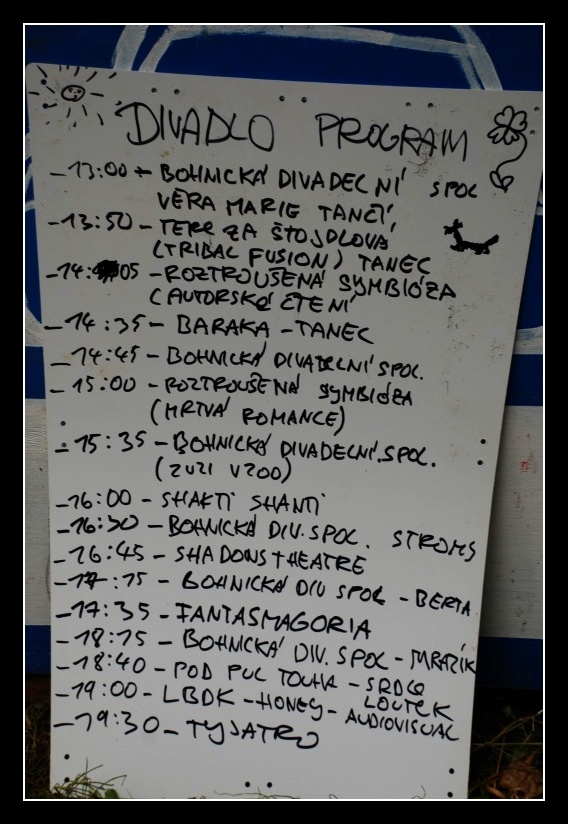 DIVADLO PROGRAM
-13:00 - BOHNICKÁ DIVADELNÍ SPOL
VĚRA MARIE TANČÍ
-13:50 - TEREZA ŠTOJDLOVÁ
(TRIBAL FUSION) TANEC
-14:05 - ROZTROUŠENÁ SYMBIÓZA
(AUTORSKÉ ČTENÍ
-14:35 - BARAKA - TANEC
-14:45 - BOHNICKÁ DIVADELNÍ SPOL.
-15:00 - ROZTROUŠENÁ SYMBIÓZA
(MRTVÁ ROMANCE)
-15:35 - BOHNICKÁ DIVADELNÍ.SPOL.
(ZUZI V ZOO)
-16:00 - SHAKTI SHANTI
-16:30 - BOHNICKÁ DIV. SPOL. STROMS
-16:45 - SHADOWS THEATRE
-17:15 - BOHNICKÁ DIV SPOL - BERTA
-17:35 - FANTASMAGORIA
-18:15 - BOHNICKÁ DIV. SPOL - MRAZÍK
-18:40 - POD PUL TOUHA - SRDCE LOUTEK
-19:00 - LBDK - HONEY - AUDIOVISUAL
-19:30 - TYJATRO